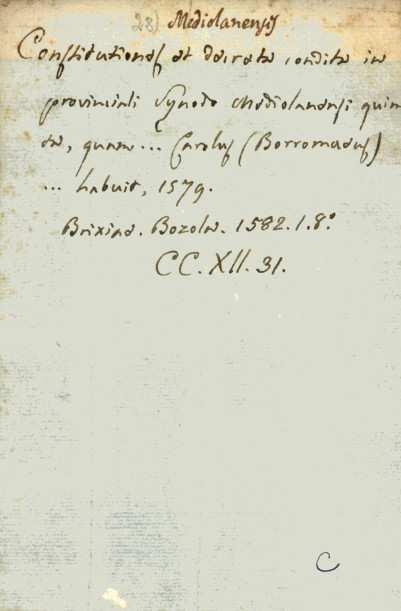 28) Mediolanensis
Constitutiones et decreta condita in
provinciali Synodo Mediolanensi quin
ta, quam... Carolus (Borromaeus)
... habuit, 1579.
Brixiae. Bozola. 1582. 1. 8.°
CC. XII. 31.
C